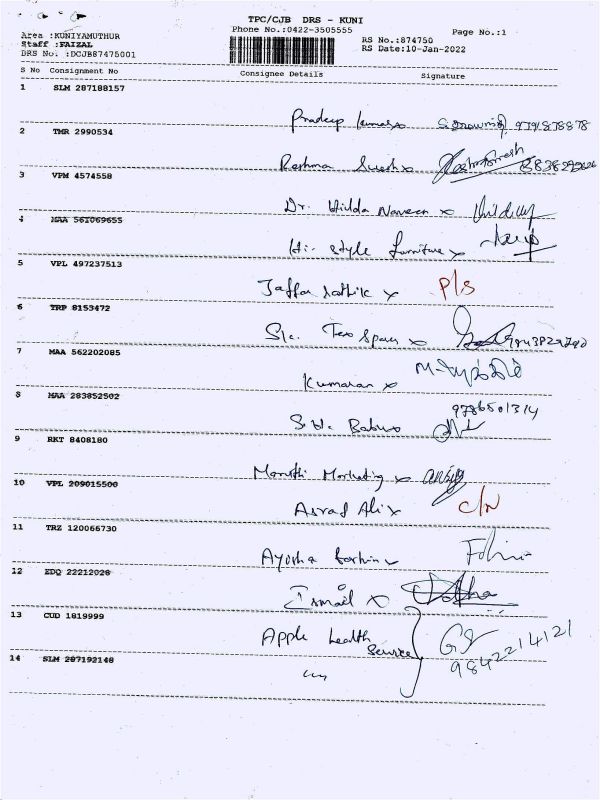 TPC/CJB DRS - KUNI
Phone No.:0422-3505555
Page No.:1
Area :KUNIYAMUTHUR
RS No.:874750
Staff :FAIZAL
RS Date:10-Jan-2022
DRS No. :DCJB87475001
S No Consignment No Consignee Details Signature
1 SLM 287188157
Pradeep Kumar x
2 TMR 2990534
Reshma Suresh x
3 VPM 4574558
Dr. Hilda Naveen x
4 MAA 561069655
Hi-Style furniture x
5 VPL 497237513
Jaffar Sathik x P/S
6 TRP 8153472
7 MAA 562202085
Kumaran x
8 MAA 283852502
9786501314
Babu
9 RKT 8408180
Maruthi Marketing x
10 VPL 209015500
Asraf Ali x C/N
11 TRZ 120066730
Ayisha
12 EDQ 22212028
Ismail x
13 CUD 1819999
Apple Health
Service
9842214121
14 SLM 287192148